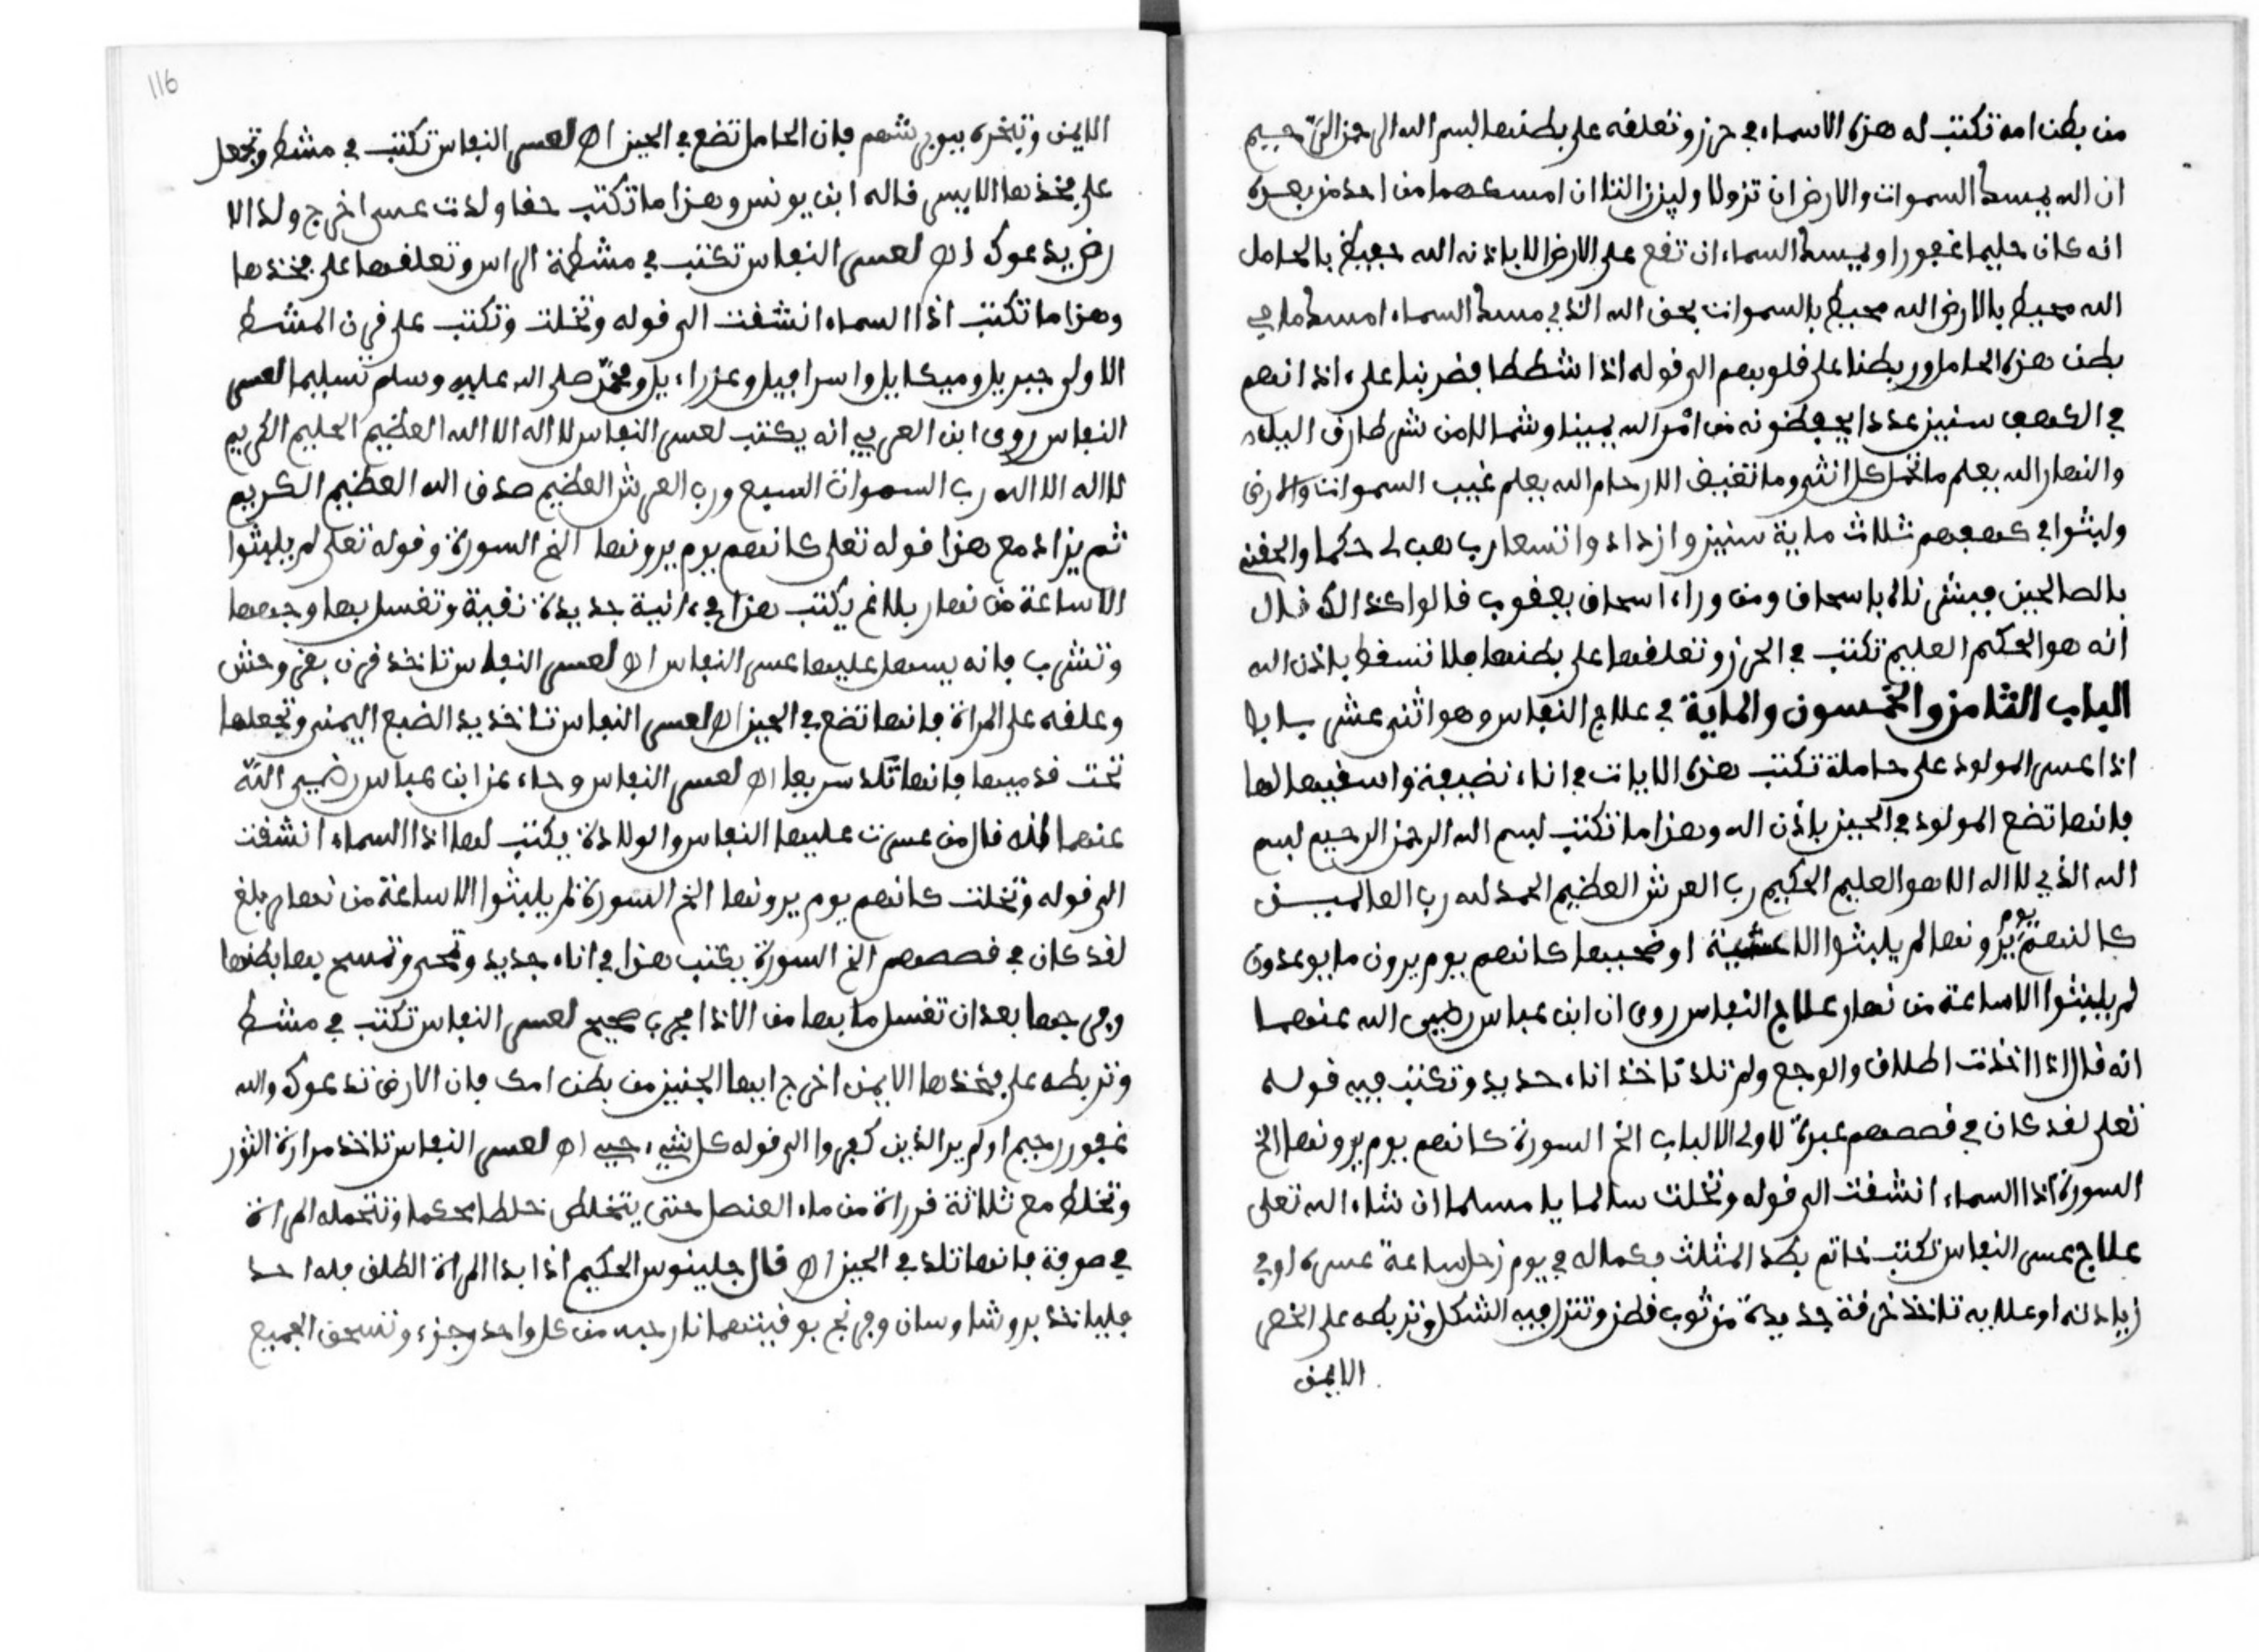 من بطن امه تكتب له هذه الاسماء في حرز وتعلقه على بطنها بسم الله الرحمن الرحيم
ان الله يمسك السموات والارض ان تزولا ولين زالتا ان امسكهما من احد من بعده
انه كان حليما غفورا ويمسك السماء ان تقع على الارض الا باذنه الله حفيظ بالحامل
الله محيط بالارض الله محيط بالسموات بحق الله الذي مسك السماء امسك ما في
بطن هذه الحامل وربطنا على قلوبهم الى قوله اذا شططا فضربنا على ءاذانهم
في الكهف سنين عددا يحفظونه من امر الله يمينا وشمالا من شر طارق اليل
والنهار الله يعلم ما تحمل كل انثى وما تغيض الارحام الله يعلم غيب السموات والارض
ولبثوا في كهفهم ثلاث ماية سنين وازدادوا تسعا رب هب لى حكما والحقني
بالصالحين فبشرناه باسحاق ومن وراء اسحاق يعقوب قالوا كذالك قال
انه هو الحكيم العليم تكتب في الحرز وتعلقها على بطنها فلا تسقط باذن الله
الباب الثامن والخمسون والماية في علاج النفاس وهو اثنى عشر بابا
اذا عسر المولود على حاملة تكتب هذه الايات في اناء نضيفة واسقيها لها
فانها تضع المولود في الحين باذن الله وهذا ما تكتب بسم الله الرحمن الرحيم بسم
الله الذي لا اله الا هو العليم الحكيم رب العرش العظيم الحمد لله رب العالمين
كانهم يوم يرونها لم يلبثوا الا عشية او ضحيها كانهم يوم يرون ما يوعدون
لم يلبثوا الا ساعة من نهار علاج النفاس روى ان ابن عباس رضي الله عنهما
انه قال اذا اخذت اطلاق والوجع ولم تلد تاخذ اناء حديد وتكتب فيه قوله
تعلى لقد كان في قصصهم عبرة لاولى الالباب الخ السورة كانهم يوم يرونها الخ
السورة اذا السماء انشقت الى قوله وتخلت سالما يا مسلما ان شاء الله تعلى
علاج عسر النفاس تكتب خاتم بطد المثلث بكماله في يوم زحل ساعة عسره او في
زيادته او علايه تاخذ خرقة جديدة من ثوب قطن وتنزل فيه الشكل وتربطه على الخصر
الايمن
116
الايمن وتبخره بيوبرشهم فان الحامل تضع في الحين اهـ لعسر النفاس تكتب في مشط وتجعل
على فخذها الايسر قاله ابن يونس وهذا ما تكتب حفا ولدت عسر اخرج ولد الا
رض يدعوك اهـ لعسر النفاس تكتب في مشطة الراس وتعلقها على فخذها
وهذا ما تكتب اذا السماء انشقت الى قوله وتخلت وتكتب على قرن المشط
الاولى جبريل وميكايل واسرافيل وعزراءيل ومحمد صلى الله عليه وسلم تسليما لعسر
النفاس روى ابن العربي انه يكتب لعسر النفاس لا اله الا الله العظيم الحليم الكريم
لا اله الا الله رب السموات السبع ورب العرش العظيم صدق الله العظيم الكريم
ثم يزاد مع هذا قوله تعلى كانهم يوم يرونها الخ السورة وقوله تعلى لم يلبثوا
الا ساعة من نهار بلاغ يكتب هذا في ءانية جديدة نقية وتغسل بها وجهها
وتشرب فانه يسهل عليها عسر النفاس اهـ لعسر النفاس تاخذ قرن بقر وحش
وعلقه على المراة فانها تضع في الحين اهـ لعسر النفاس تاخذ يد الضبع اليمنى وتجعلها
تحت قدميها فانها تلد سريعا اهـ لعسر النفاس وجاء عن ابن عباس رضي الله
عنهما انه قال من عسرت عليها النفاس والولادة يكتب لها اذا السماء انشقت
الى قوله وتخلت كانهم يوم يرونها الخ السورة لم يلبثوا الا ساعة من نهار بلغ
لقد كان في قصصهم الخ السورة يكتب هذا في اناء جديد وتمحى وتمسح بها بطنها
وفرجها بعد ان تغسل ما بها من الاذا مجرب صحيح لعسر النفاس تكتب في مشط
وتربطه على فخذها الايمن اخرج ايها الجنين من بطن امك فان الارض تدعوك والله
غفور رحيم اولم ير الذين كفروا الى قوله كل شيء حي اهـ لعسر النفاس تاخذ مرارة الثور
وتخلط مع ثلاثة قرراة من ماء العنصل حتى يتخلط خلطا محكما وتتحمله المراة
في صوفة فانها تلد في الحين اهـ قال جلينوس الحكيم اذا بدا المراة الطلق فله احد
فلياخذ بروشا وسان وفرنج بوفيتهما نارحيه من كل واحد وجزء وتسحق الجميع